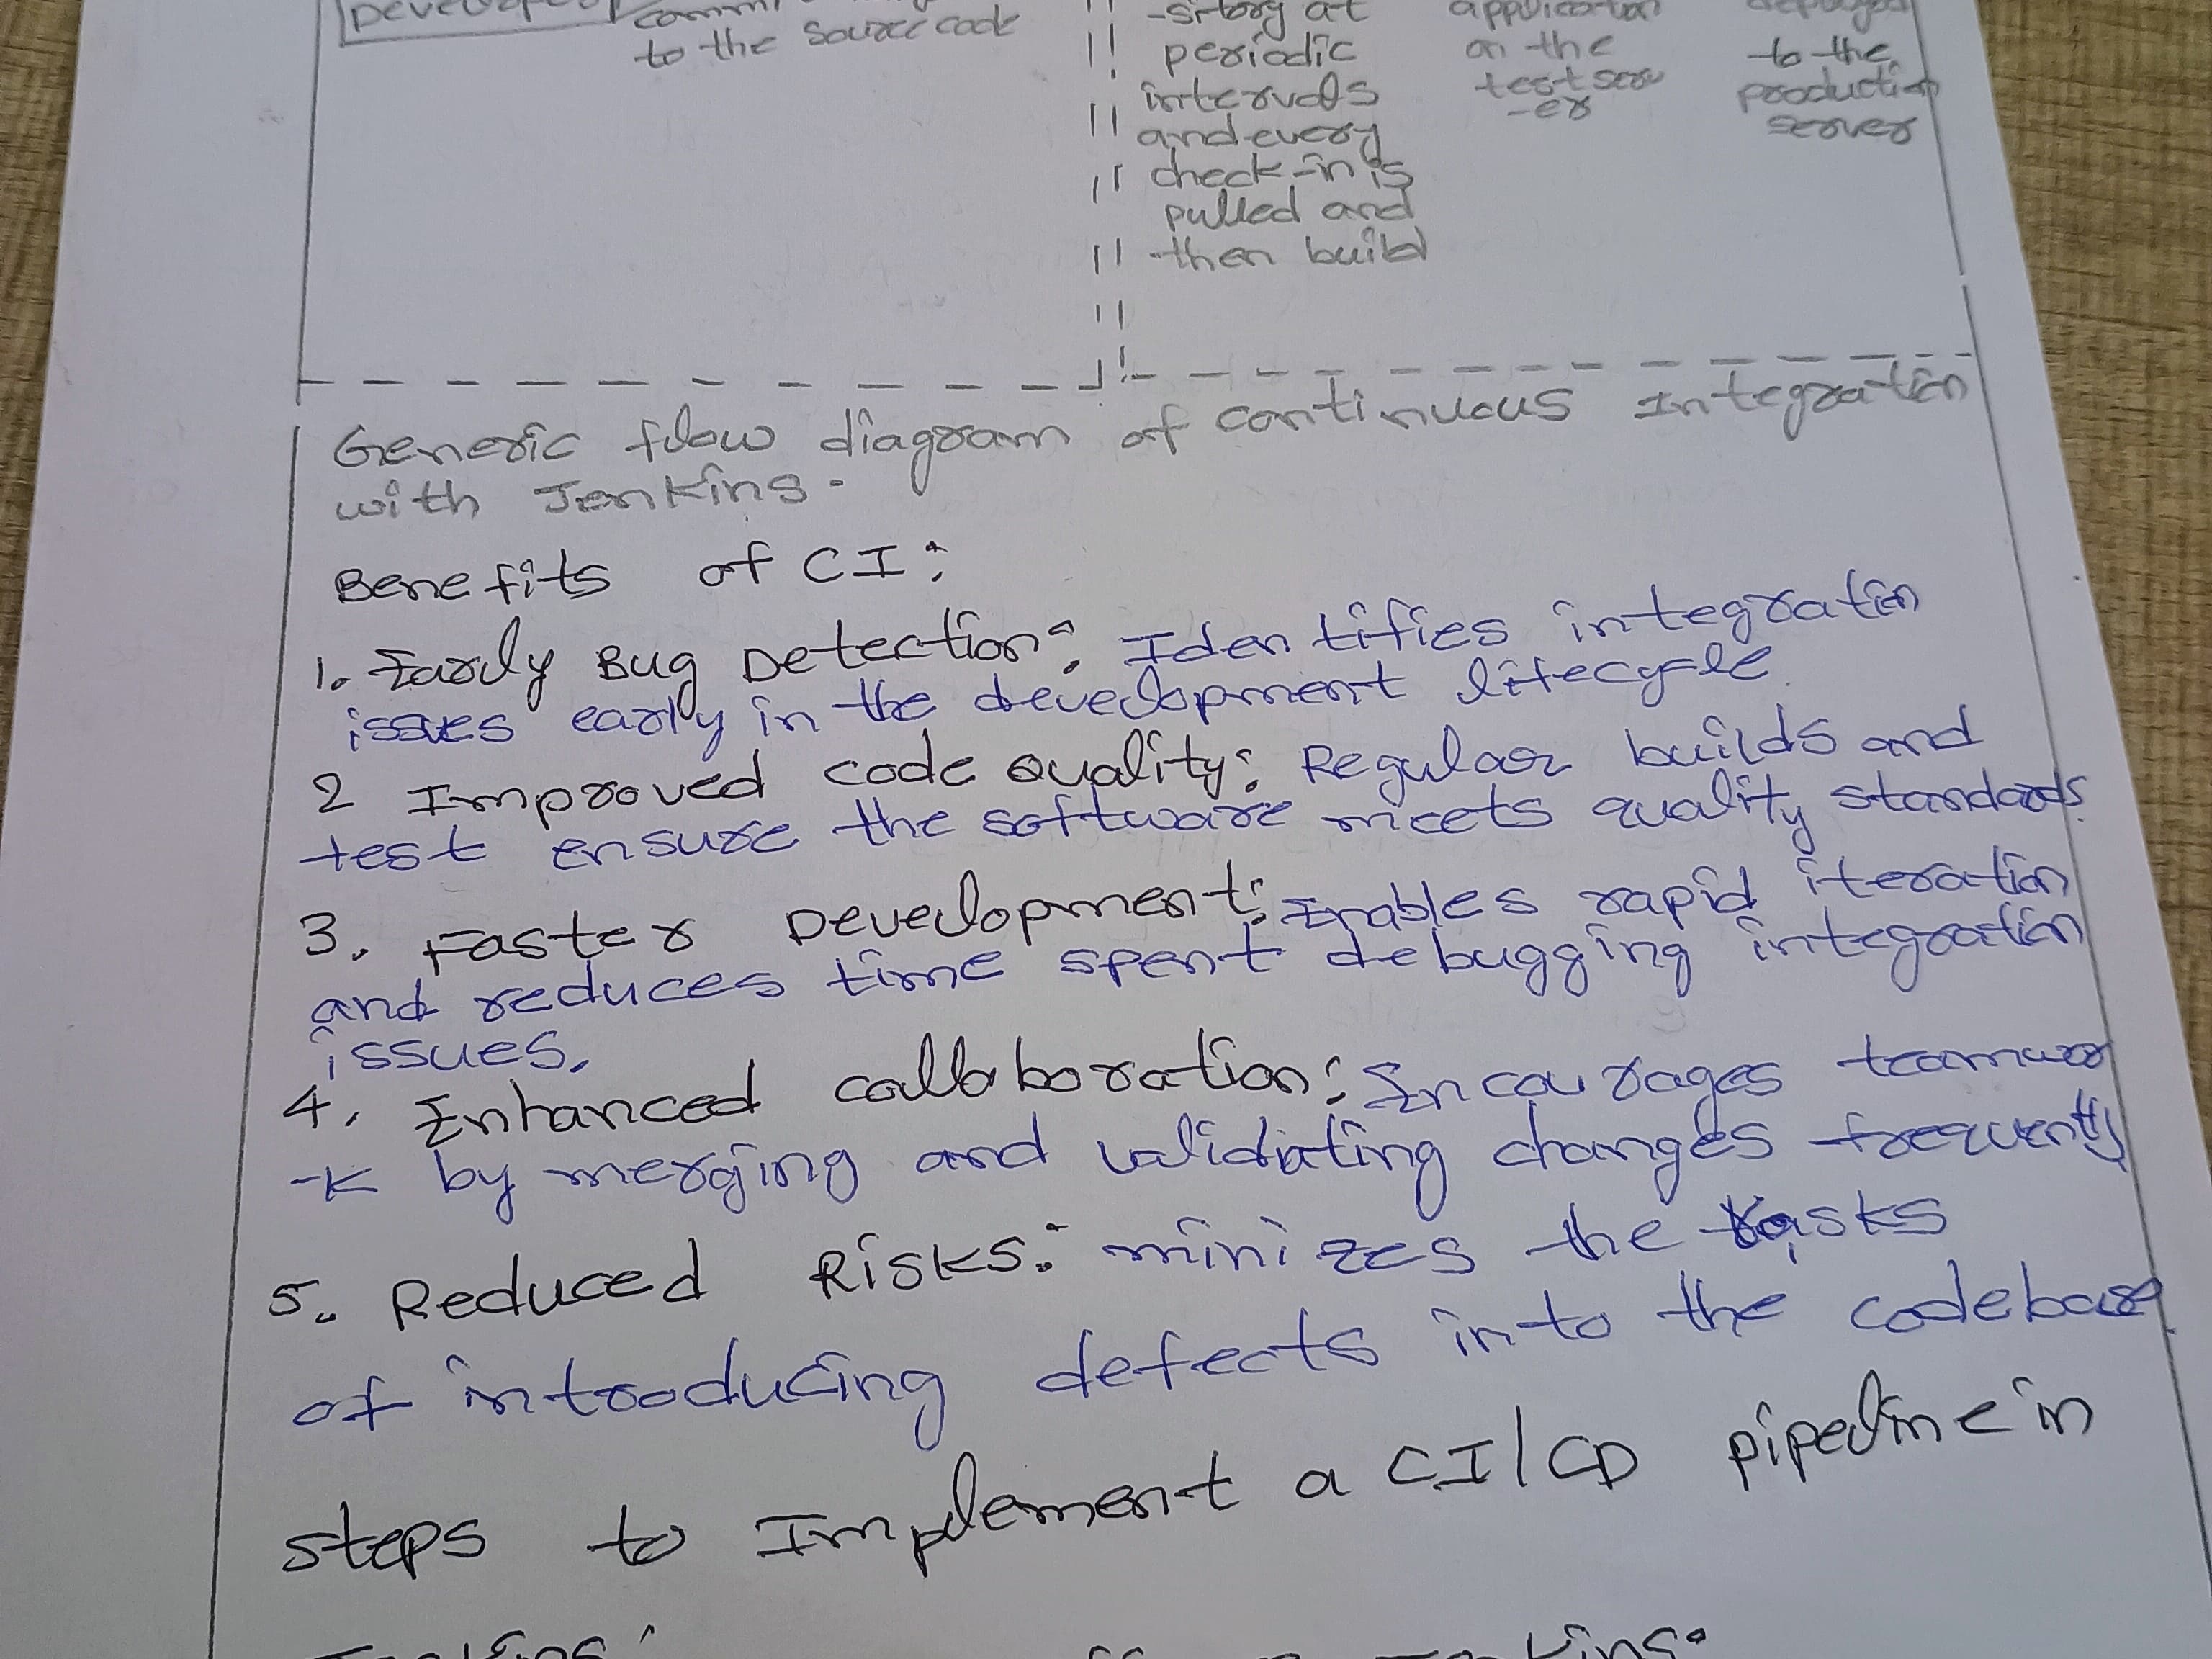 to the source code
-sitory at
periodic
intervals
and every
check-in is
pulled and
then build
application
on the
test serv
-er
deployed
to the
production
server
Generic flow diagram of continuous Integration
with Jenkins.
Benefits of CI:
1. Early Bug Detection: Identifies integration
issues early in the development lifecycle.
2 Improved code Quality: Regular builds and
test ensure the software meets quality standards.
3. Faster Development: Enables rapid iteration
and reduces time spent debugging integration
issues.
4. Enhanced collaboration: Encourages teamwor
-k by merging and validating changes frequently
5. Reduced Risks: minizes the
of introducing defects into the codebase.
steps to Implement a CI/CD pipeline in